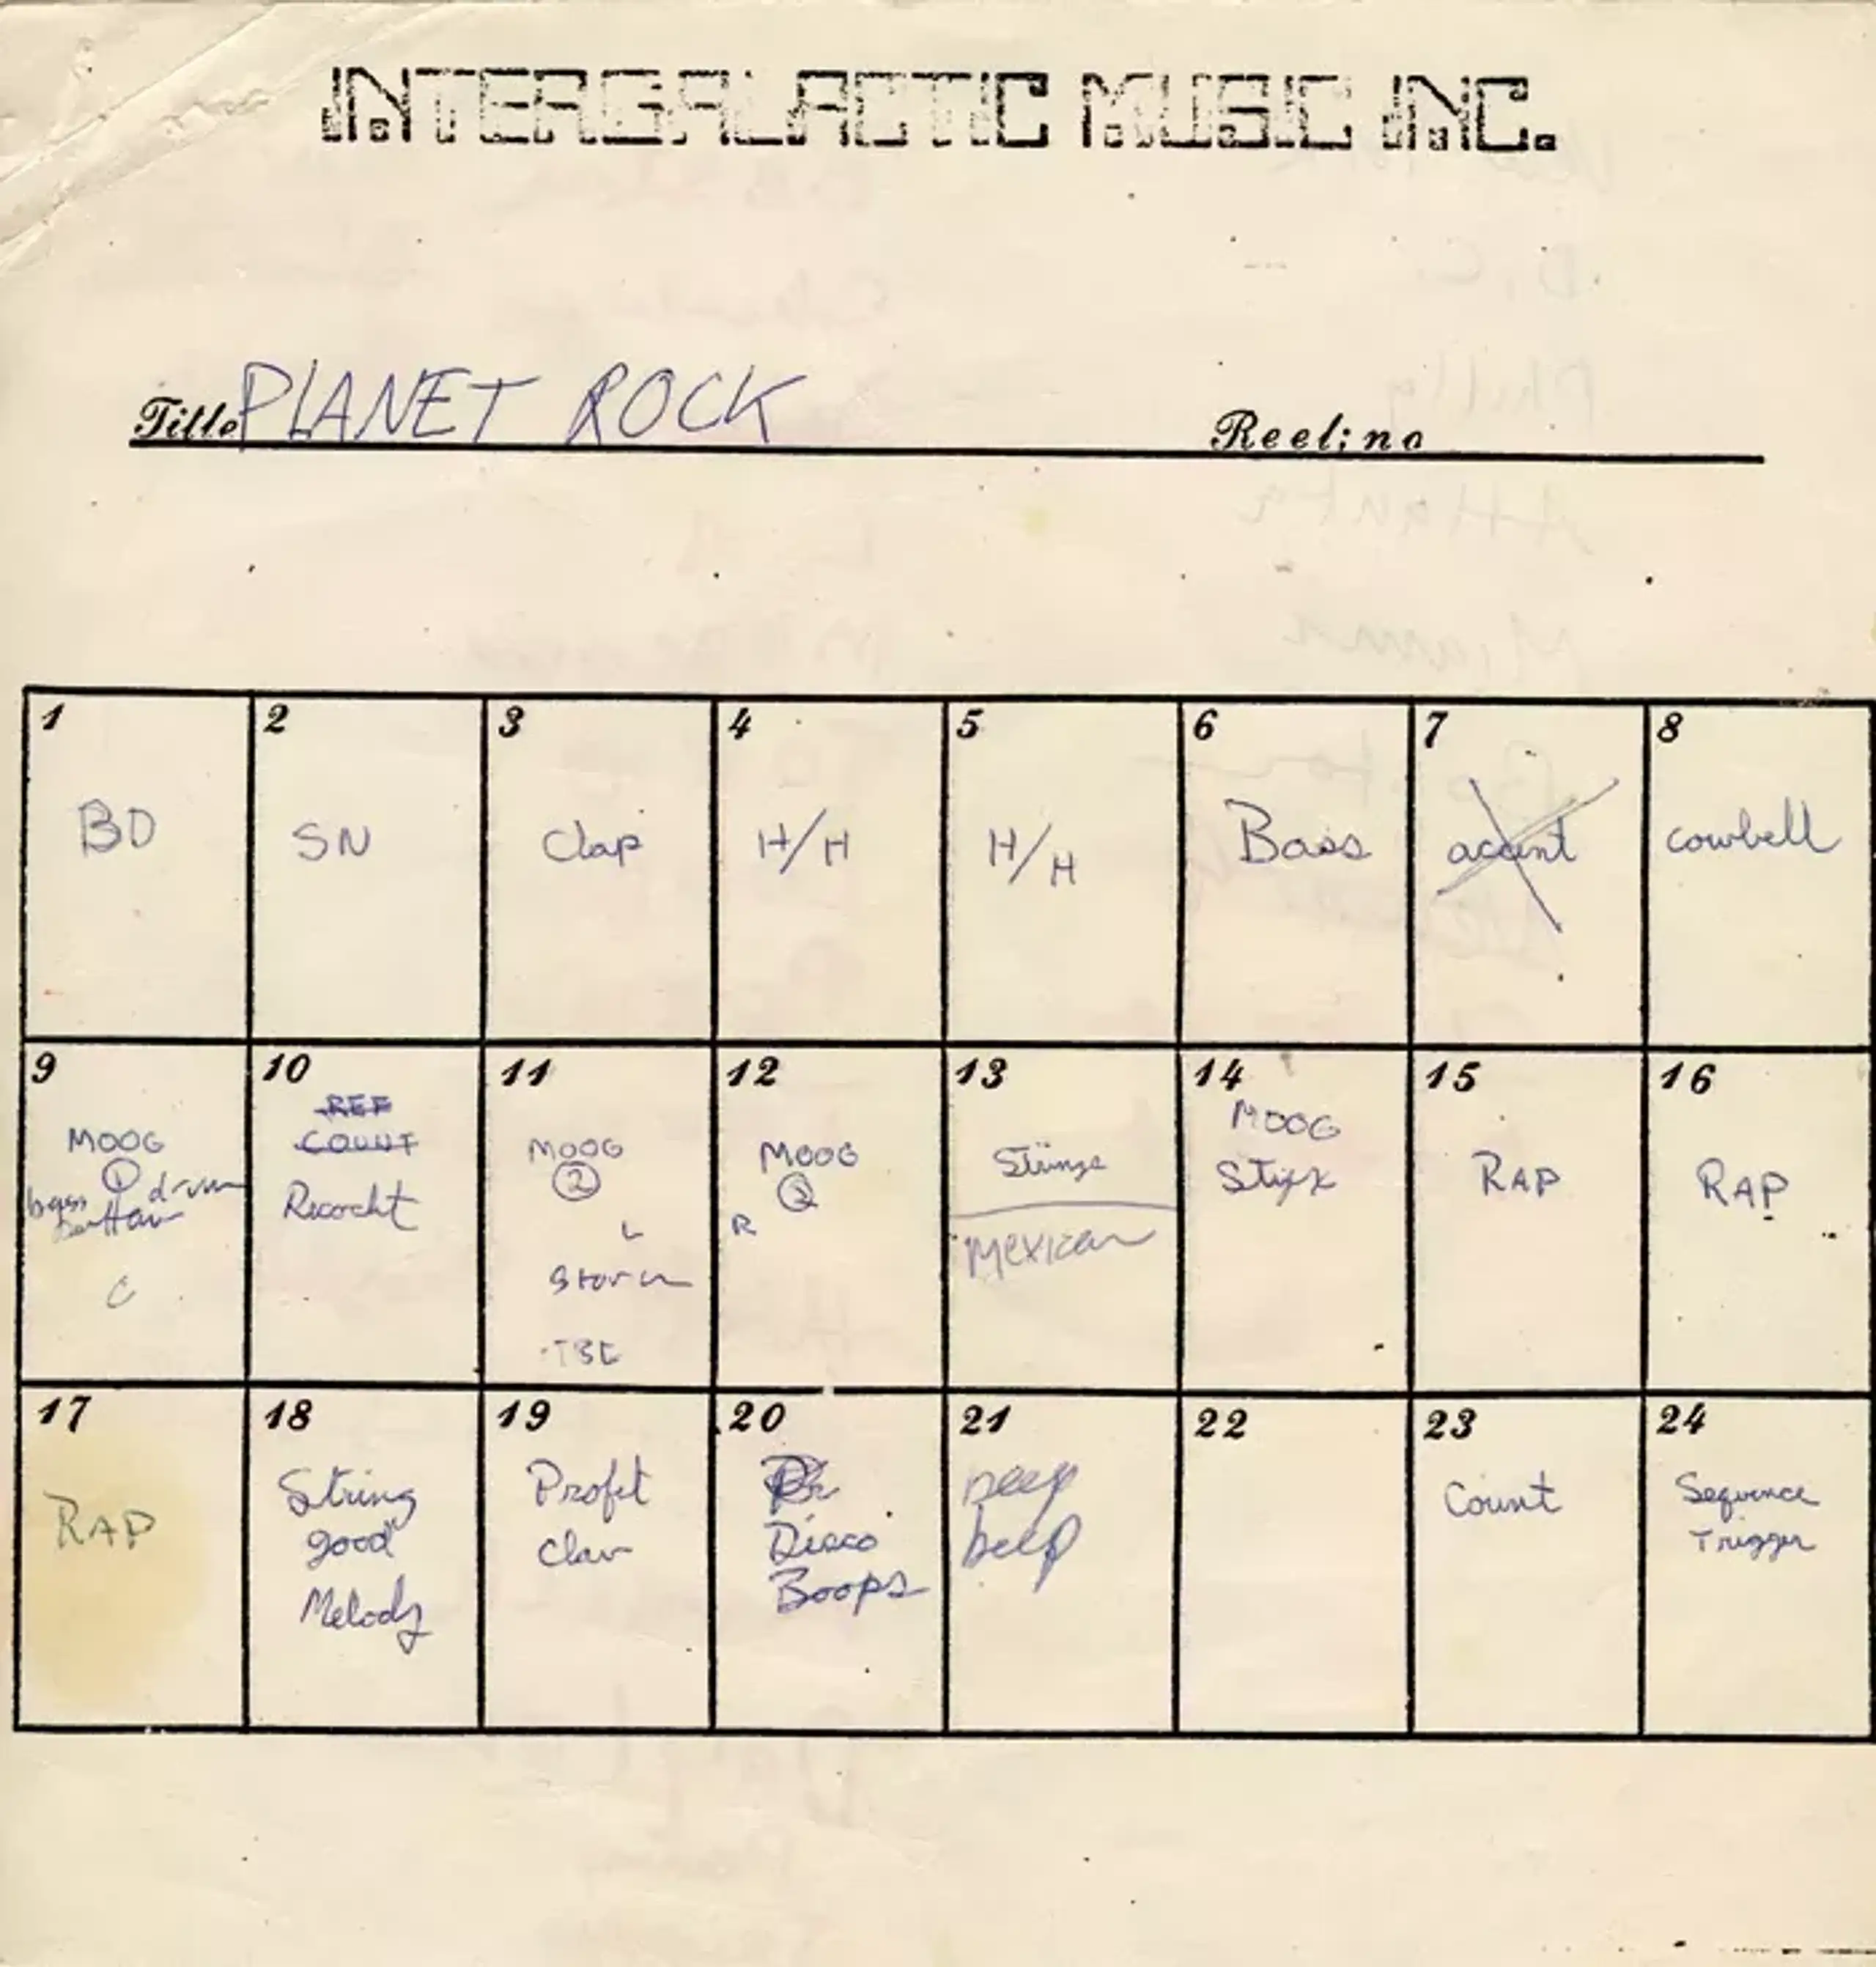 INTERGALACTIC MUSIC INC.
Title PLANET ROCK
Reel: no
1
BD
2
SN
3
Clap
4
H/H
5
H/H
6
Bass
7
accent
8
cowbell
9
MOOG
1
bass drum
10
REF
COUNT
11
MOOG
2
L
12
MOOG
R
13
Strings
Mexican
14
MOOG
15
RAP
16
RAP
17
RAP
18
String
good
Melody
19
Profit
Clav
20
Disco
Boops
21
beep
22
23
Count
24
Sequence
Trigger